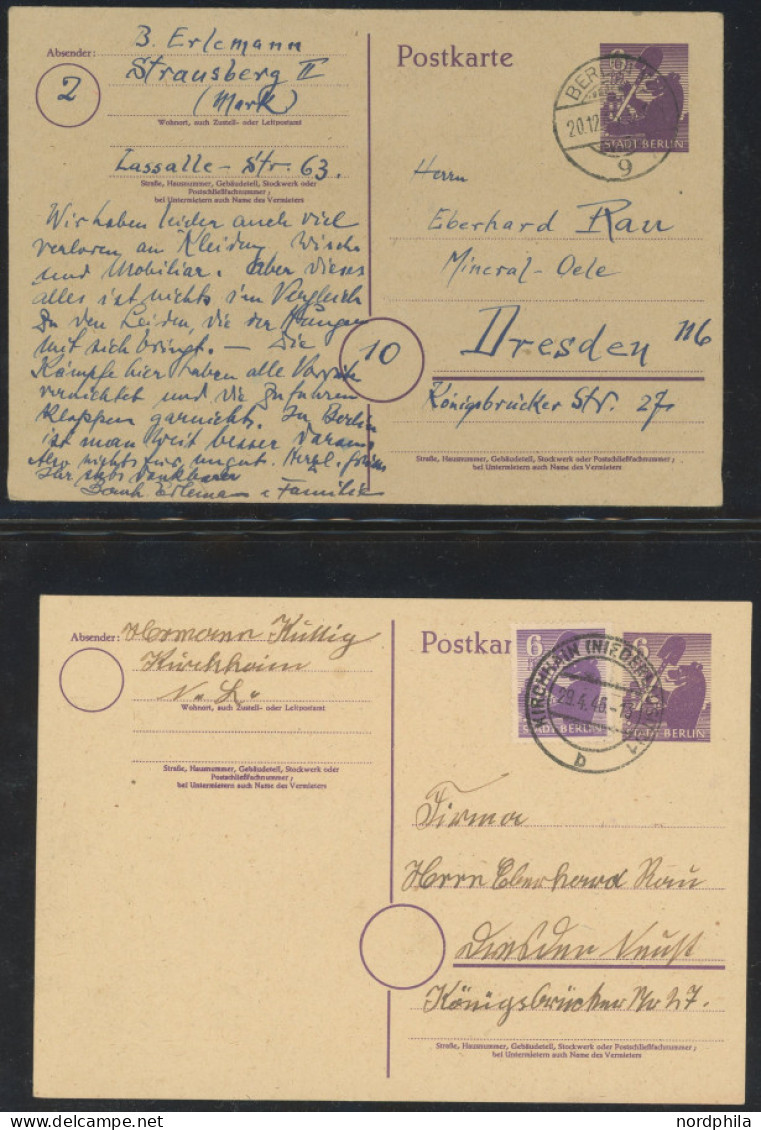 Absender: B. Erlemann
Strausberg II
(Mark)
2
Wohnort, auch Zustell- oder Leitpostamt
Lassalle-Str. 63.
Straße, Hausnummer, Gebäudeteil, Stockwerk oder
Postschließfachnummer;
bei Untermietern auch Name des Vermieters
Wir haben leider auch viel
verloren an Kleidung Wäsche
und Mobiliar. Aber dieses
alles ist nichts im Vergleich
zu den Leiden, die der Hunger
mit sich bringt. — Die
Kämpfe hier haben alle Vorräte
vernichtet und die Zufuhren
klappen garnicht. In Berlin
ist man weit besser daran.
Also nichts für ungut. Herzl. Grüße
Ihr stets dankbarer
Erlemann u Familie
Postkarte
6
STADT BERLIN
BERLIN
20.12
9
Herrn
Eberhard Rau
Mineral-Oele
10
Dresden N6
Königsbrücker Str. 27
Straße, Hausnummer, Gebäudeteil, Stockwerk oder Postschließfachnummer;
bei Untermietern auch Name des Vermieters
Absender: Hermann Küttig
Kirchhain
N.-L.
Wohnort, auch Zustell- oder Leitpostamt
Straße, Hausnummer, Gebäudeteil, Stockwerk oder
Postschließfachnummer;
bei Untermietern auch Name des Vermieters
Postkar
6
STADT BERLIN
6
STADT BERLIN
KIRCHHAIN (NIEDERLAUSITZ)
29.4.46.-18
b
Firma
Herrn Eberhard Rau
Dresden Neust
Königsbrücker Str 27.
Straße, Hausnummer, Gebäudeteil, Stockwerk oder Postschließfachnummer;
bei Untermietern auch Name des Vermieters
www.nordphila.com